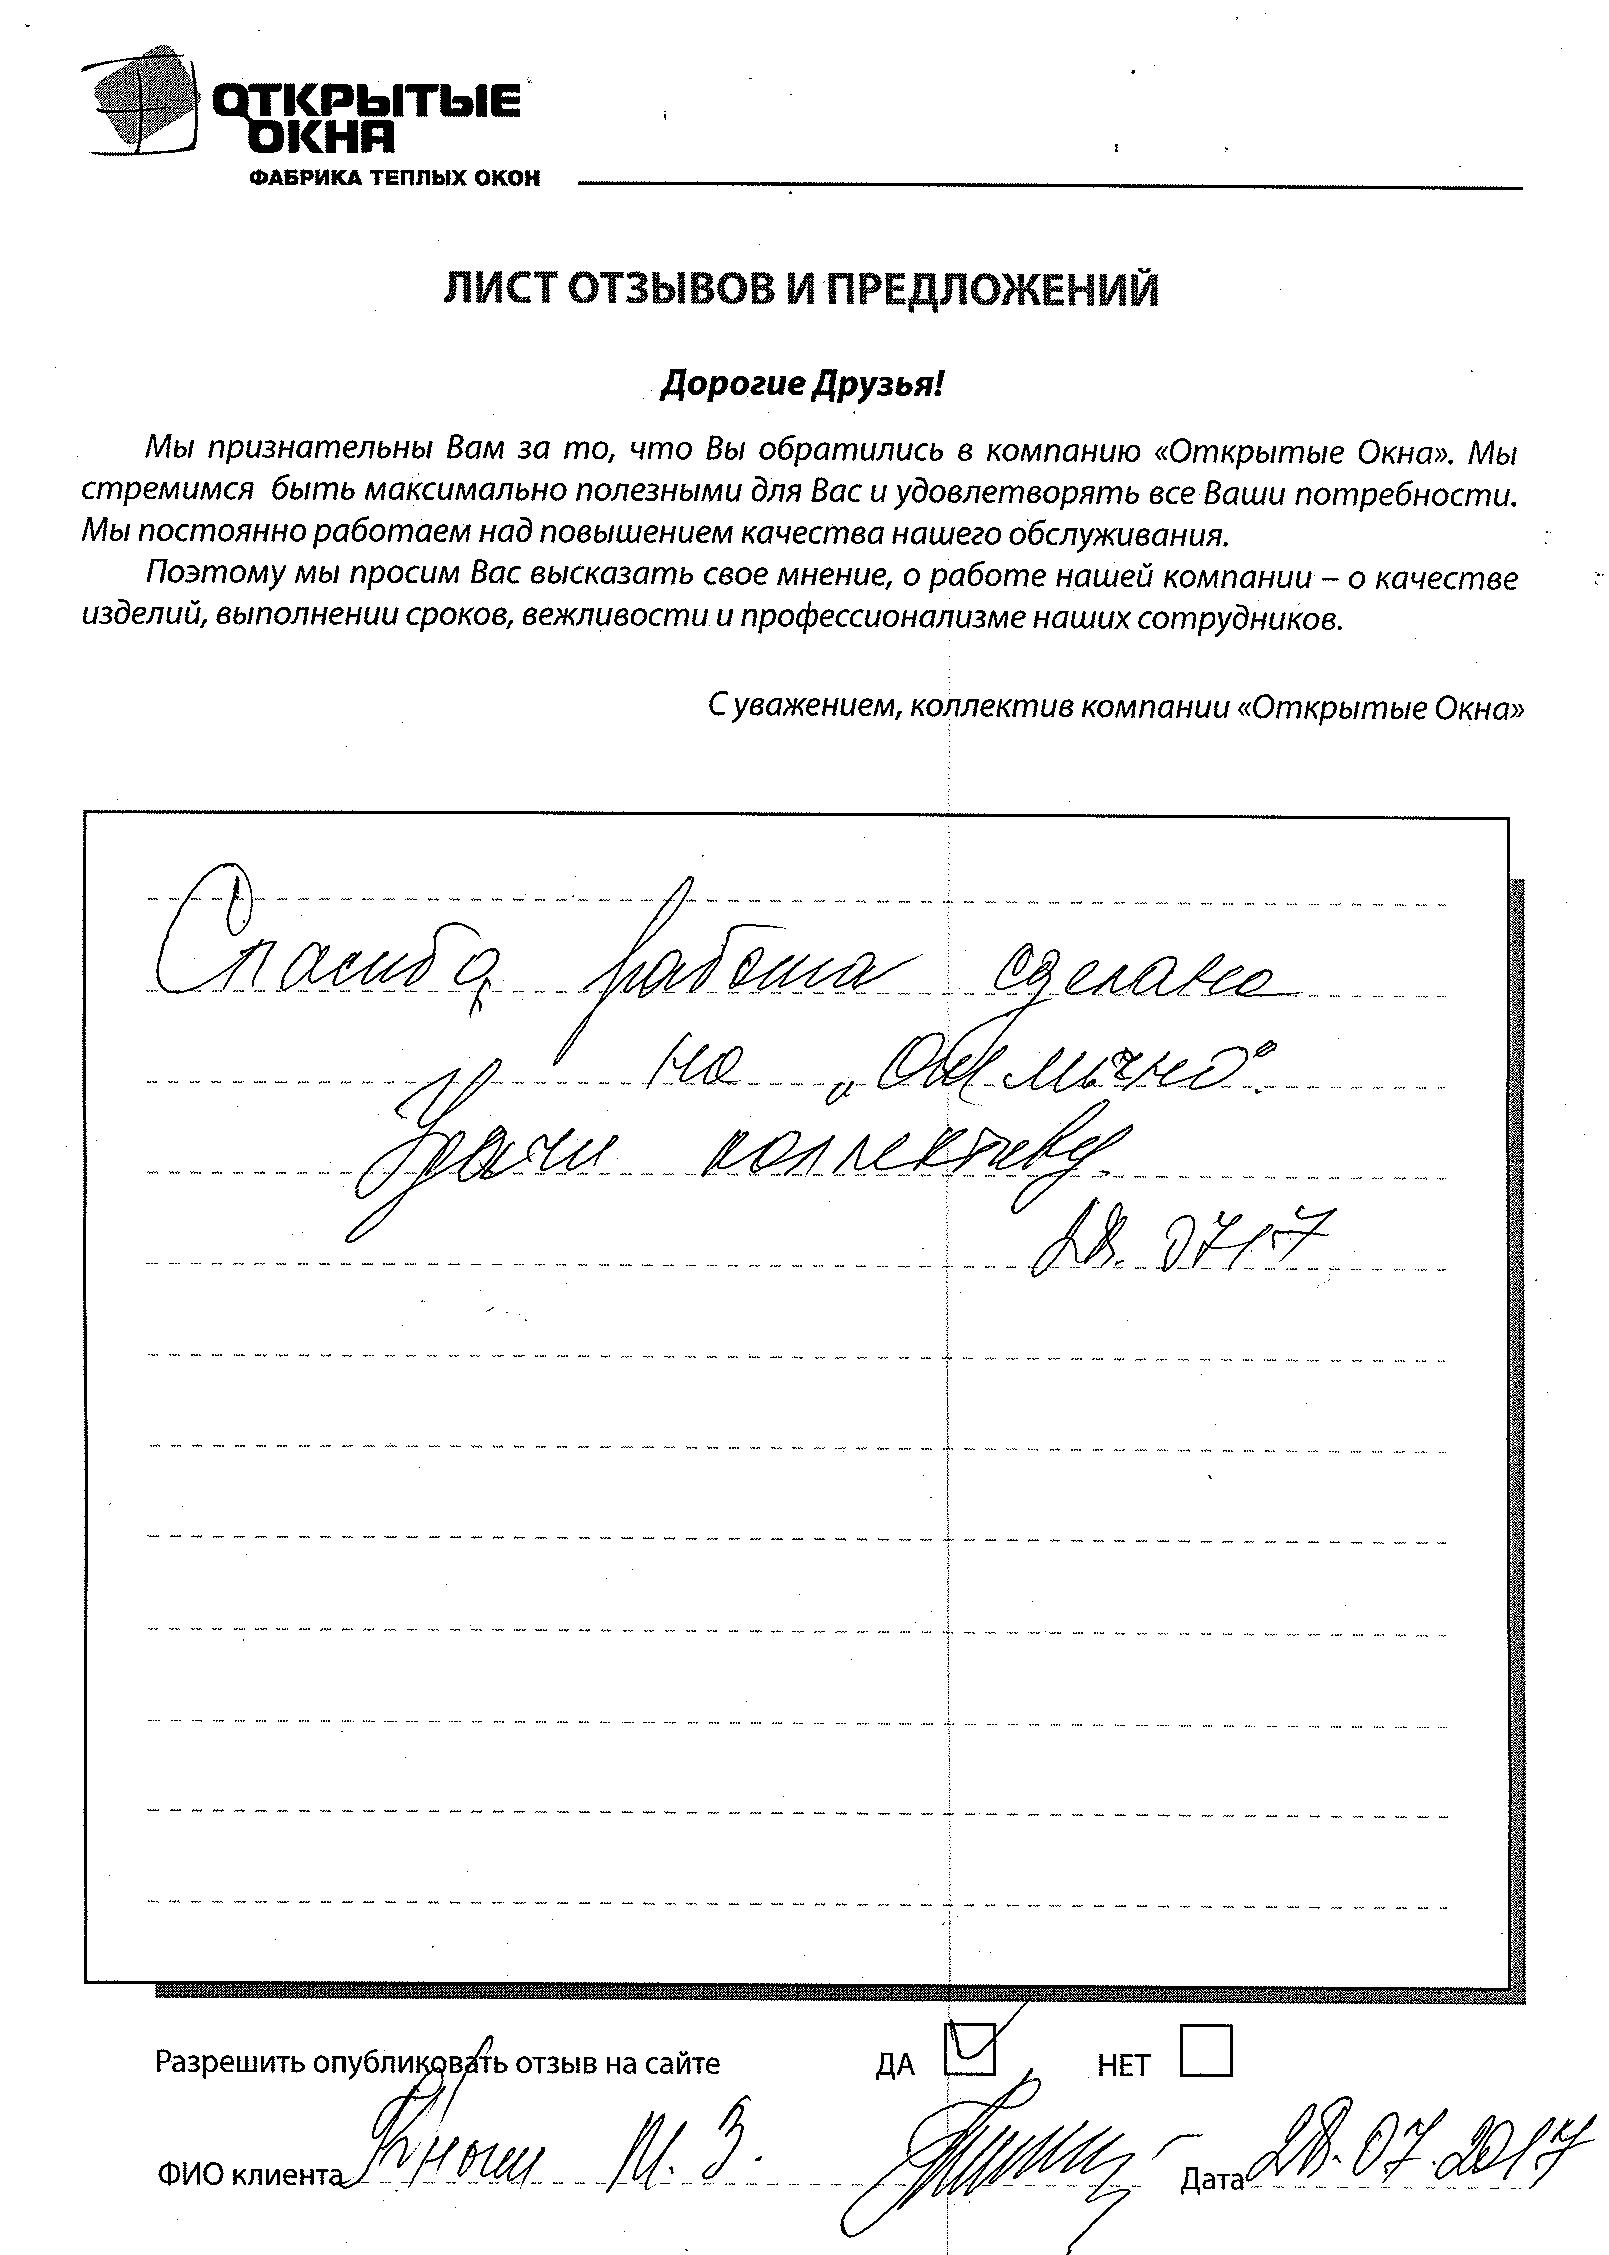 ОТКРЫТЫЕ
ОКНА
ФАБРИКА ТЕПЛЫХ ОКОН
ЛИСТ ОТЗЫВОВ И ПРЕДЛОЖЕНИЙ
Дорогие Друзья!
Мы признательны Вам за то, что Вы обратились в компанию «Открытые Окна». Мы
стремимся быть максимально полезными для Вас и удовлетворять все Ваши потребности.
Мы постоянно работаем над повышением качества нашего обслуживания.
Поэтому мы просим Вас высказать свое мнение, о работе нашей компании – о качестве
изделий, выполнении сроков, вежливости и профессионализме наших сотрудников.
С уважением, коллектив компании «Открытые Окна»
Спасибо, работа сделана
на „отлично".
Удачи коллективу.
28.07.17
Разрешить опубликовать отзыв на сайте ДА НЕТ
ФИО клиента Дата 28.07.2017